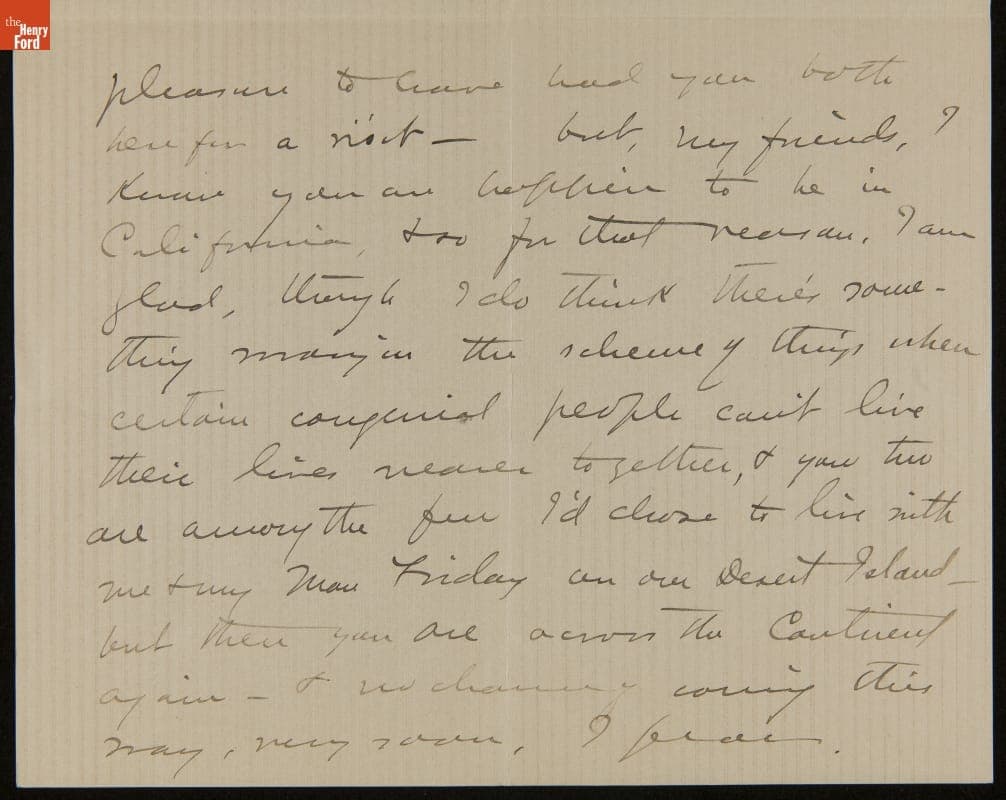 the
Henry
Ford
pleasure to have had you both
here for a visit — but, my friends, I
know you are happier to be in
California, & so for that reason, I am
glad, though I do think there's some-
thing wrong in the scheme of things when
certain congenial people can't live
their lives nearer together, & you two
are among the few I'd chose to live with
me & my Man Friday on our Desert Island —
but then you are across the Continent
again — & no chance of coming this
way, very soon, I fear.